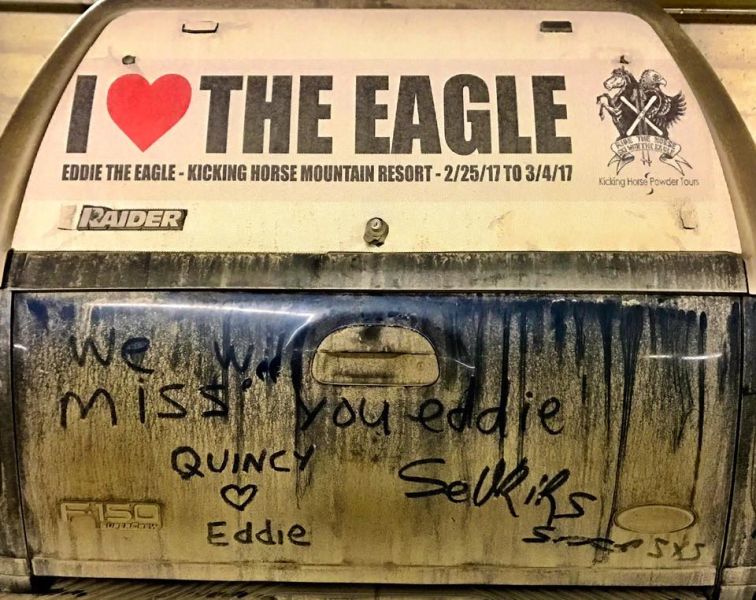 I ❤ THE EAGLE
EDDIE THE EAGLE - KICKING HORSE MOUNTAIN RESORT - 2/25/17 TO 3/4/17
Kicking Horse Powder Tours
RAIDER
We
miss you eddie
QUINCY
♡
Eddie
Selkirks
SXS
F-150
SUPERCREW